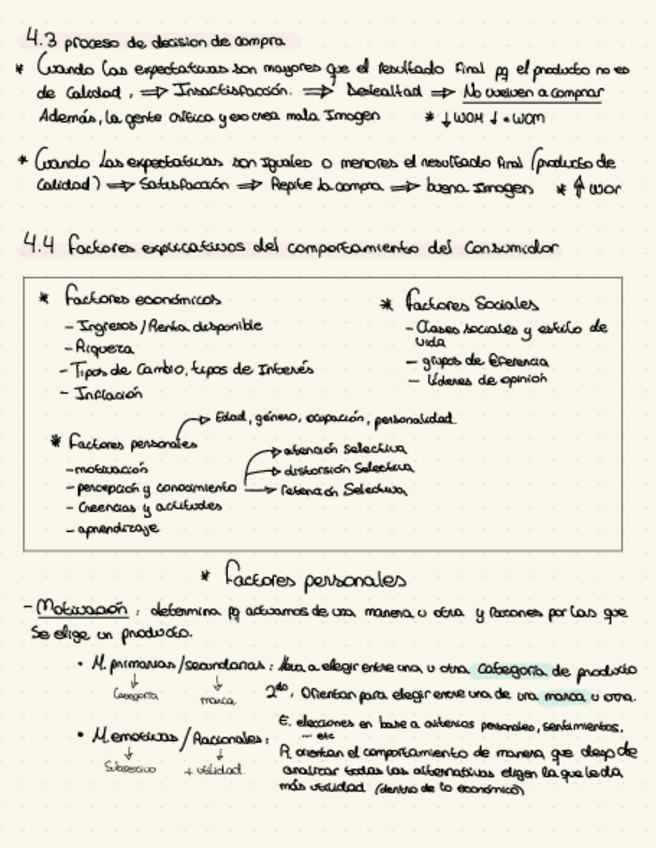 4.3 proceso de decision de compra
* Cuando las expectativas son mayores que el resultado final pq el producto no es
de calidad, ⇒ Insactisfacción. ⇒ Deslealtad ⇒ No vuelven a comprar
Además, la gente critica y eso crea mala Imagen * ↓ WOM ↓ • WOM
* Cuando las expectativas son Iguales o menores el resultado final (producto de
Calidad) ⇒ Satisfacción ⇒ Repite la compra ⇒ buena Imagen * ⇑ WOM
4.4 Factores explicativos del comportamiento del Consumidor
* Factores económicos
- Ingresos / Renta disponible
- Riqueza
- Tipos de Cambio, tipos de Interés
- Inflación
* Factores Sociales
- Clases sociales y estilo de
vida
- grupos de referencia
- Líderes de opinión
Edad, género, ocupación, personalidad
* Factores personales
- motivación
- percepción y conocimiento
- Creencias y actitudes
- aprendizaje
→ atención Selectiva
→ distorsión Selectiva
→ retención Selectiva
* Factores personales
- Motivación : determina pq actuamos de una manera u otra y Razones por las que
Se elige un producto.
• M. primarias / secundarias : a elegir entre una u otra categoría de producto
↓ Categoria ↓ marca 2do. Orientan para elegir entre una de una marca u otra.
• M. emotivas / Racionales : E. elecciones en base a criterios personales, sentimientos,
... etc
↓ Subjetivo ↓ + utilidad R. orientan el comportamiento de manera que de
analizar todas las alternativas eligen la que le da
más utilidad (dentro de lo económico)